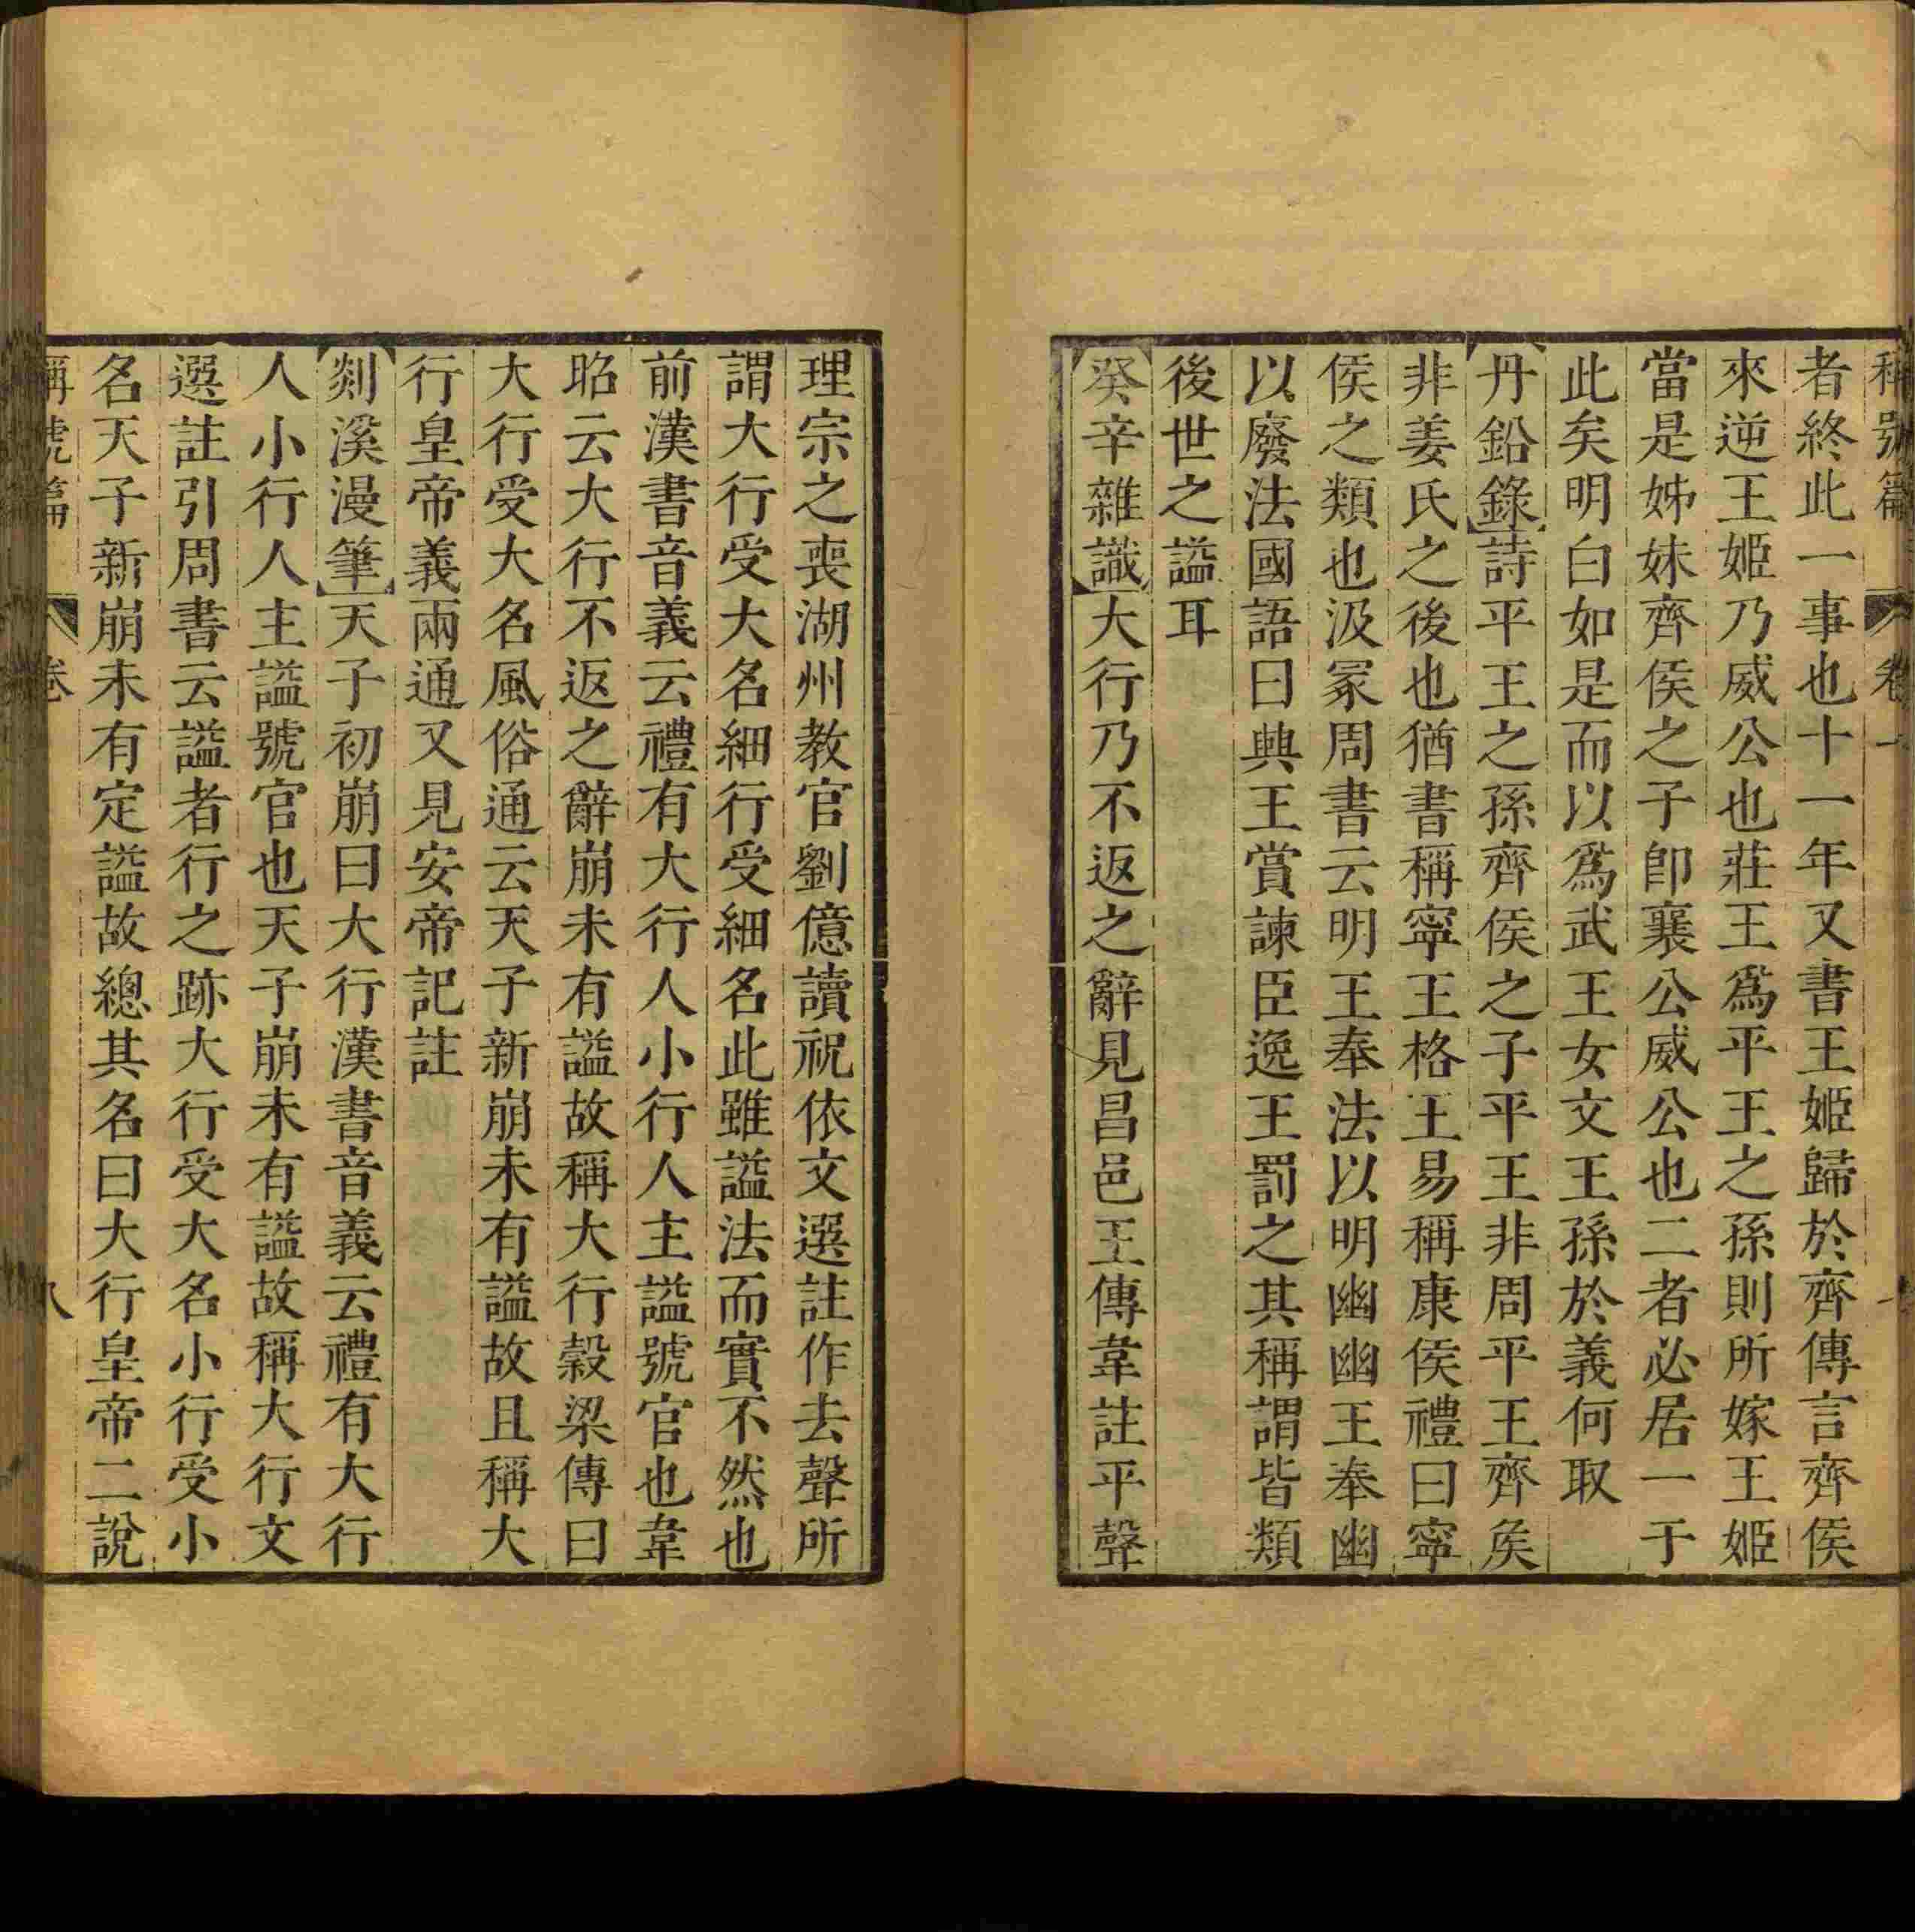 稱號篇 卷一
者終此一事也十一年又書王姬歸於齊傳言齊侯
來逆王姬乃威公也莊王爲平王之孫則所嫁王姬
當是姊妹齊侯之子卽襄公威公也二者必居一于
此矣明白如是而以爲武王女文王孫於義何取
丹鉛錄詩平王之孫齊侯之子平王非周平王齊矦
非姜氏之後也猶書稱寧王格王易稱康侯禮曰寧
侯之類也汲冢周書云明王奉法以明幽幽王奉幽
以廢法國語曰興王賞諫臣逸王罰之其稱謂皆類
後世之謚耳
癸辛雜識大行乃不返之辭見昌邑王傳韋註平聲
理宗之喪湖州教官劉億讀祝依文選註作去聲所
謂大行受大名細行受細名此雖謚法而實不然也
前漢書音義云禮有大行人小行人主謚號官也韋
昭云大行不返之辭崩未有謚故稱大行穀梁傳曰
大行受大名風俗通云天子新崩未有謚故且稱大
行皇帝義兩通又見安帝記註
剡溪漫筆天子初崩曰大行漢書音義云禮有大行
人小行人主謚號官也天子崩未有謚故稱大行文
選註引周書云謚者行之跡大行受大名小行受小
名天子新崩未有定謚故總其名曰大行皇帝二說
稱號篇 卷 八